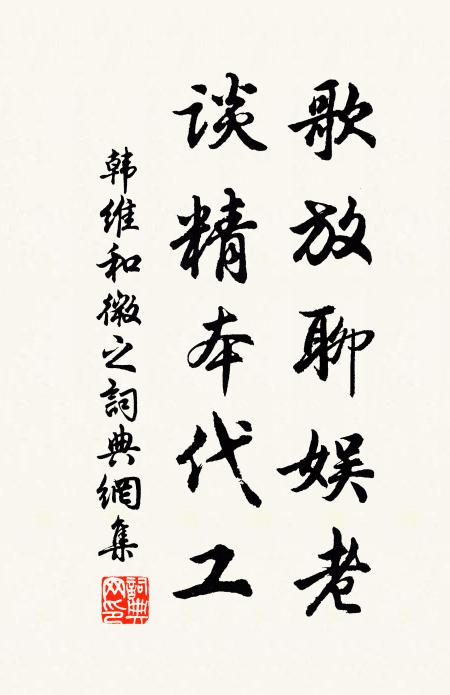 歌放聊娱老
谈精本代工
韩维和微之詞典網集
詞典
网印